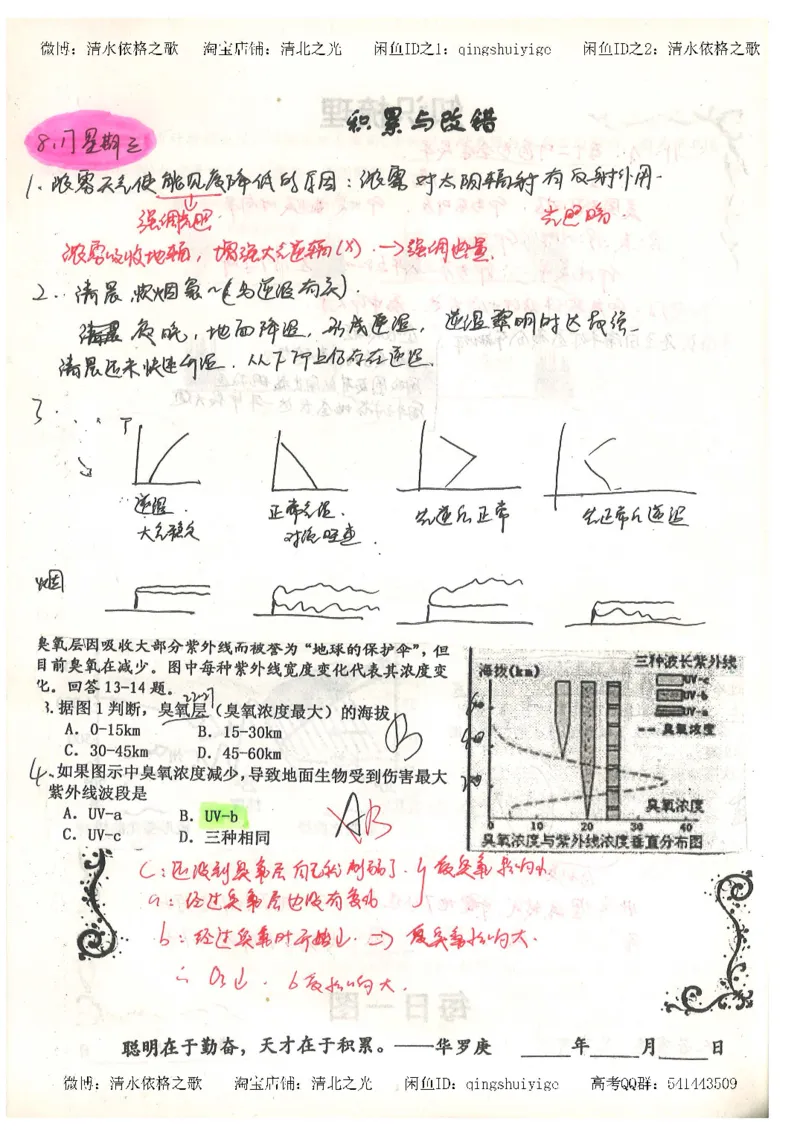 微博：清水依格之歌 淘宝店铺：清北之光 闲鱼ID之1：qingshuiyige 闲鱼ID之2：清水依格之歌
积累与改错
8.1 星期三
1. 浓雾天气使能见度降低的原因：浓雾对太阳辐射有反射作用.
强调光照. 光照弱.
浓雾吸收地辐，增强大气逆辐(X). →强调热量.
2. 清晨, 炊烟(与逆温有关).
夜晚，地面降温，形成逆温， 逆温黎明时达最强
清晨还未快速升温. 从下而上仍存在逆温.
3.
T
逆温. 正常气温. 先逆后正常 先正常后逆温
大气稳定 对流旺盛.
烟
臭氧层因吸收大部分紫外线而被誉为“地球的保护伞”，但
目前臭氧在减少。图中每种紫外线宽度变化代表其浓度变
化。回答 13-14 题。
3.据图 1 判断，臭氧层（臭氧浓度最大）的海拔
22-27
B
A. 0-15km B. 15-30km
C. 30-45km D. 45-60km
4、如果图示中臭氧浓度减少，导致地面生物受到伤害最大
紫外线波段是
A. UV-a B. UV-b
C. UV-c D. 三种相同
A B
海拔(km) 三种波长紫外线
UV-c
UV-b
UV-a
臭氧浓度
60
40
20
臭氧浓度
0 10 20 30 40
臭氧浓度与紫外线浓度垂直分布图
C：还没到臭氧层自己就削弱了. 受臭氧影响小.
a：经过臭氧层也没有变小
b：经过臭氧时开始↓. ⇒ 受臭氧影响大.
∴ O₃↓. b受影响大.
聪明在于勤奋，天才在于积累。——华罗庚 ____年____月____日
微博：清水依格之歌 淘宝店铺：清北之光 闲鱼ID：qingshuiyige 高考QQ群：541443509